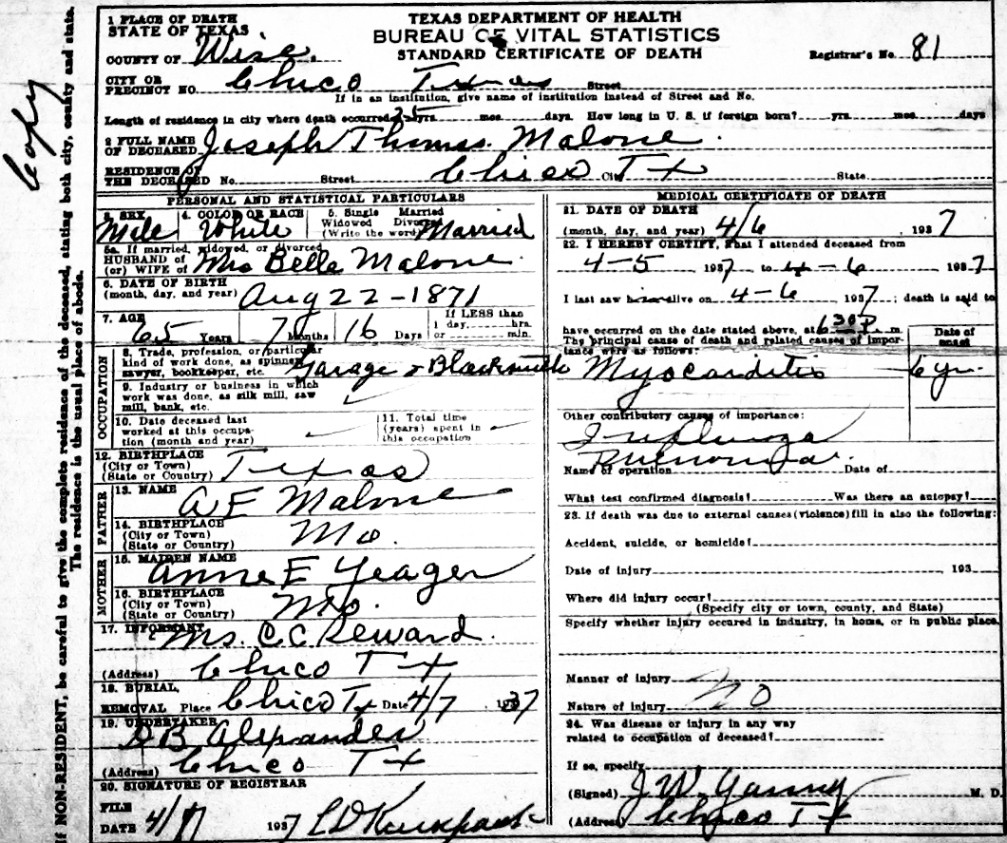 TEXAS DEPARTMENT OF HEALTH
BUREAU OF VITAL STATISTICS
STANDARD CERTIFICATE OF DEATH
Registrar's No. 81
Copy
If NON-RESIDENT, be careful to give the complete residence of the deceased, stating both city, county and state.
The residence is the usual place of abode.
1 PLACE OF DEATH
STATE OF TEXAS
COUNTY OF Wise.
CITY OR
PRECINCT NO. Chico Texas Street
If in an institution, give name of institution instead of Street and No.
Length of residence in city where death occurred 25 yrs. mos. days. How long in U. S. if foreign born? yrs. mos. days
2 FULL NAME
OF DECEASED Joseph Thomas Malone.
RESIDENCE OF
THE DECEASED No. Street Chico City Tx State
PERSONAL AND STATISTICAL PARTICULARS
3. SEX Male
4. COLOR OR RACE White
5. Single Married
Widowed Divorced
(Write the word) Married
5a. If married, widowed, or divorced
HUSBAND of
(or) WIFE of Mrs Belle Malone.
6. DATE OF BIRTH
(month, day, and year) Aug 22-1871
7. AGE 65 Years 7 Months 16 Days
If LESS than
1 day, hrs.
or min.
OCCUPATION
8. Trade, profession, or particular
kind of work done, as spinner,
sawyer, bookkeeper, etc. Garage & Blacksmith
9. Industry or business in which
work was done, as silk mill, saw
mill, bank, etc.
10. Date deceased last
worked at this occupa-
tion (month and year)
11. Total time
(years) spent in
this occupation
12. BIRTHPLACE
(City or Town)
(State or Country) Texas
FATHER
13. NAME A E Malone
14. BIRTHPLACE
(City or Town)
(State or Country) Mo.
MOTHER
15. MAIDEN NAME Anne E Yeager
16. BIRTHPLACE
(City or Town)
(State or Country) Mo.
17. INFORMANT Mrs. C.C. Reward.
(Address) Chico Tx
18. BURIAL,
REMOVAL Place Chico Tx Date 4/7 1937
19. UNDERTAKER
D B Alexander
(Address) Chico Tx
20. SIGNATURE OF REGISTRAR
FILE
DATE 4/17 1937
MEDICAL CERTIFICATE OF DEATH
21. DATE OF DEATH
(month, day, and year) 4/6, 1937
22. I HEREBY CERTIFY, that I attended deceased from
4-5 1937 to 4-6 1937
I last saw h alive on 4-6 1937; death is said to
have occurred on the date stated above, at 6 30 P. m.
The principal cause of death and related causes of impor-
tance were as follows:
Date of
onset
Myocarditis 6 yr.
Other contributory causes of importance:
Influenza
Pneumonia.
Name of operation Date of
What test confirmed diagnosis? Was there an autopsy?
23. If death was due to external causes (violence) fill in also the following:
Accident, suicide, or homicide?
Date of injury 193
Where did injury occur?
(Specify city or town, county, and State)
Specify whether injury occured in industry, in home, or in public place.
Manner of injury
No
Nature of injury
24. Was disease or injury in any way
related to occupation of deceased?
If so, specify
(Signed) J W. M. D.
(Address) Chico Tx